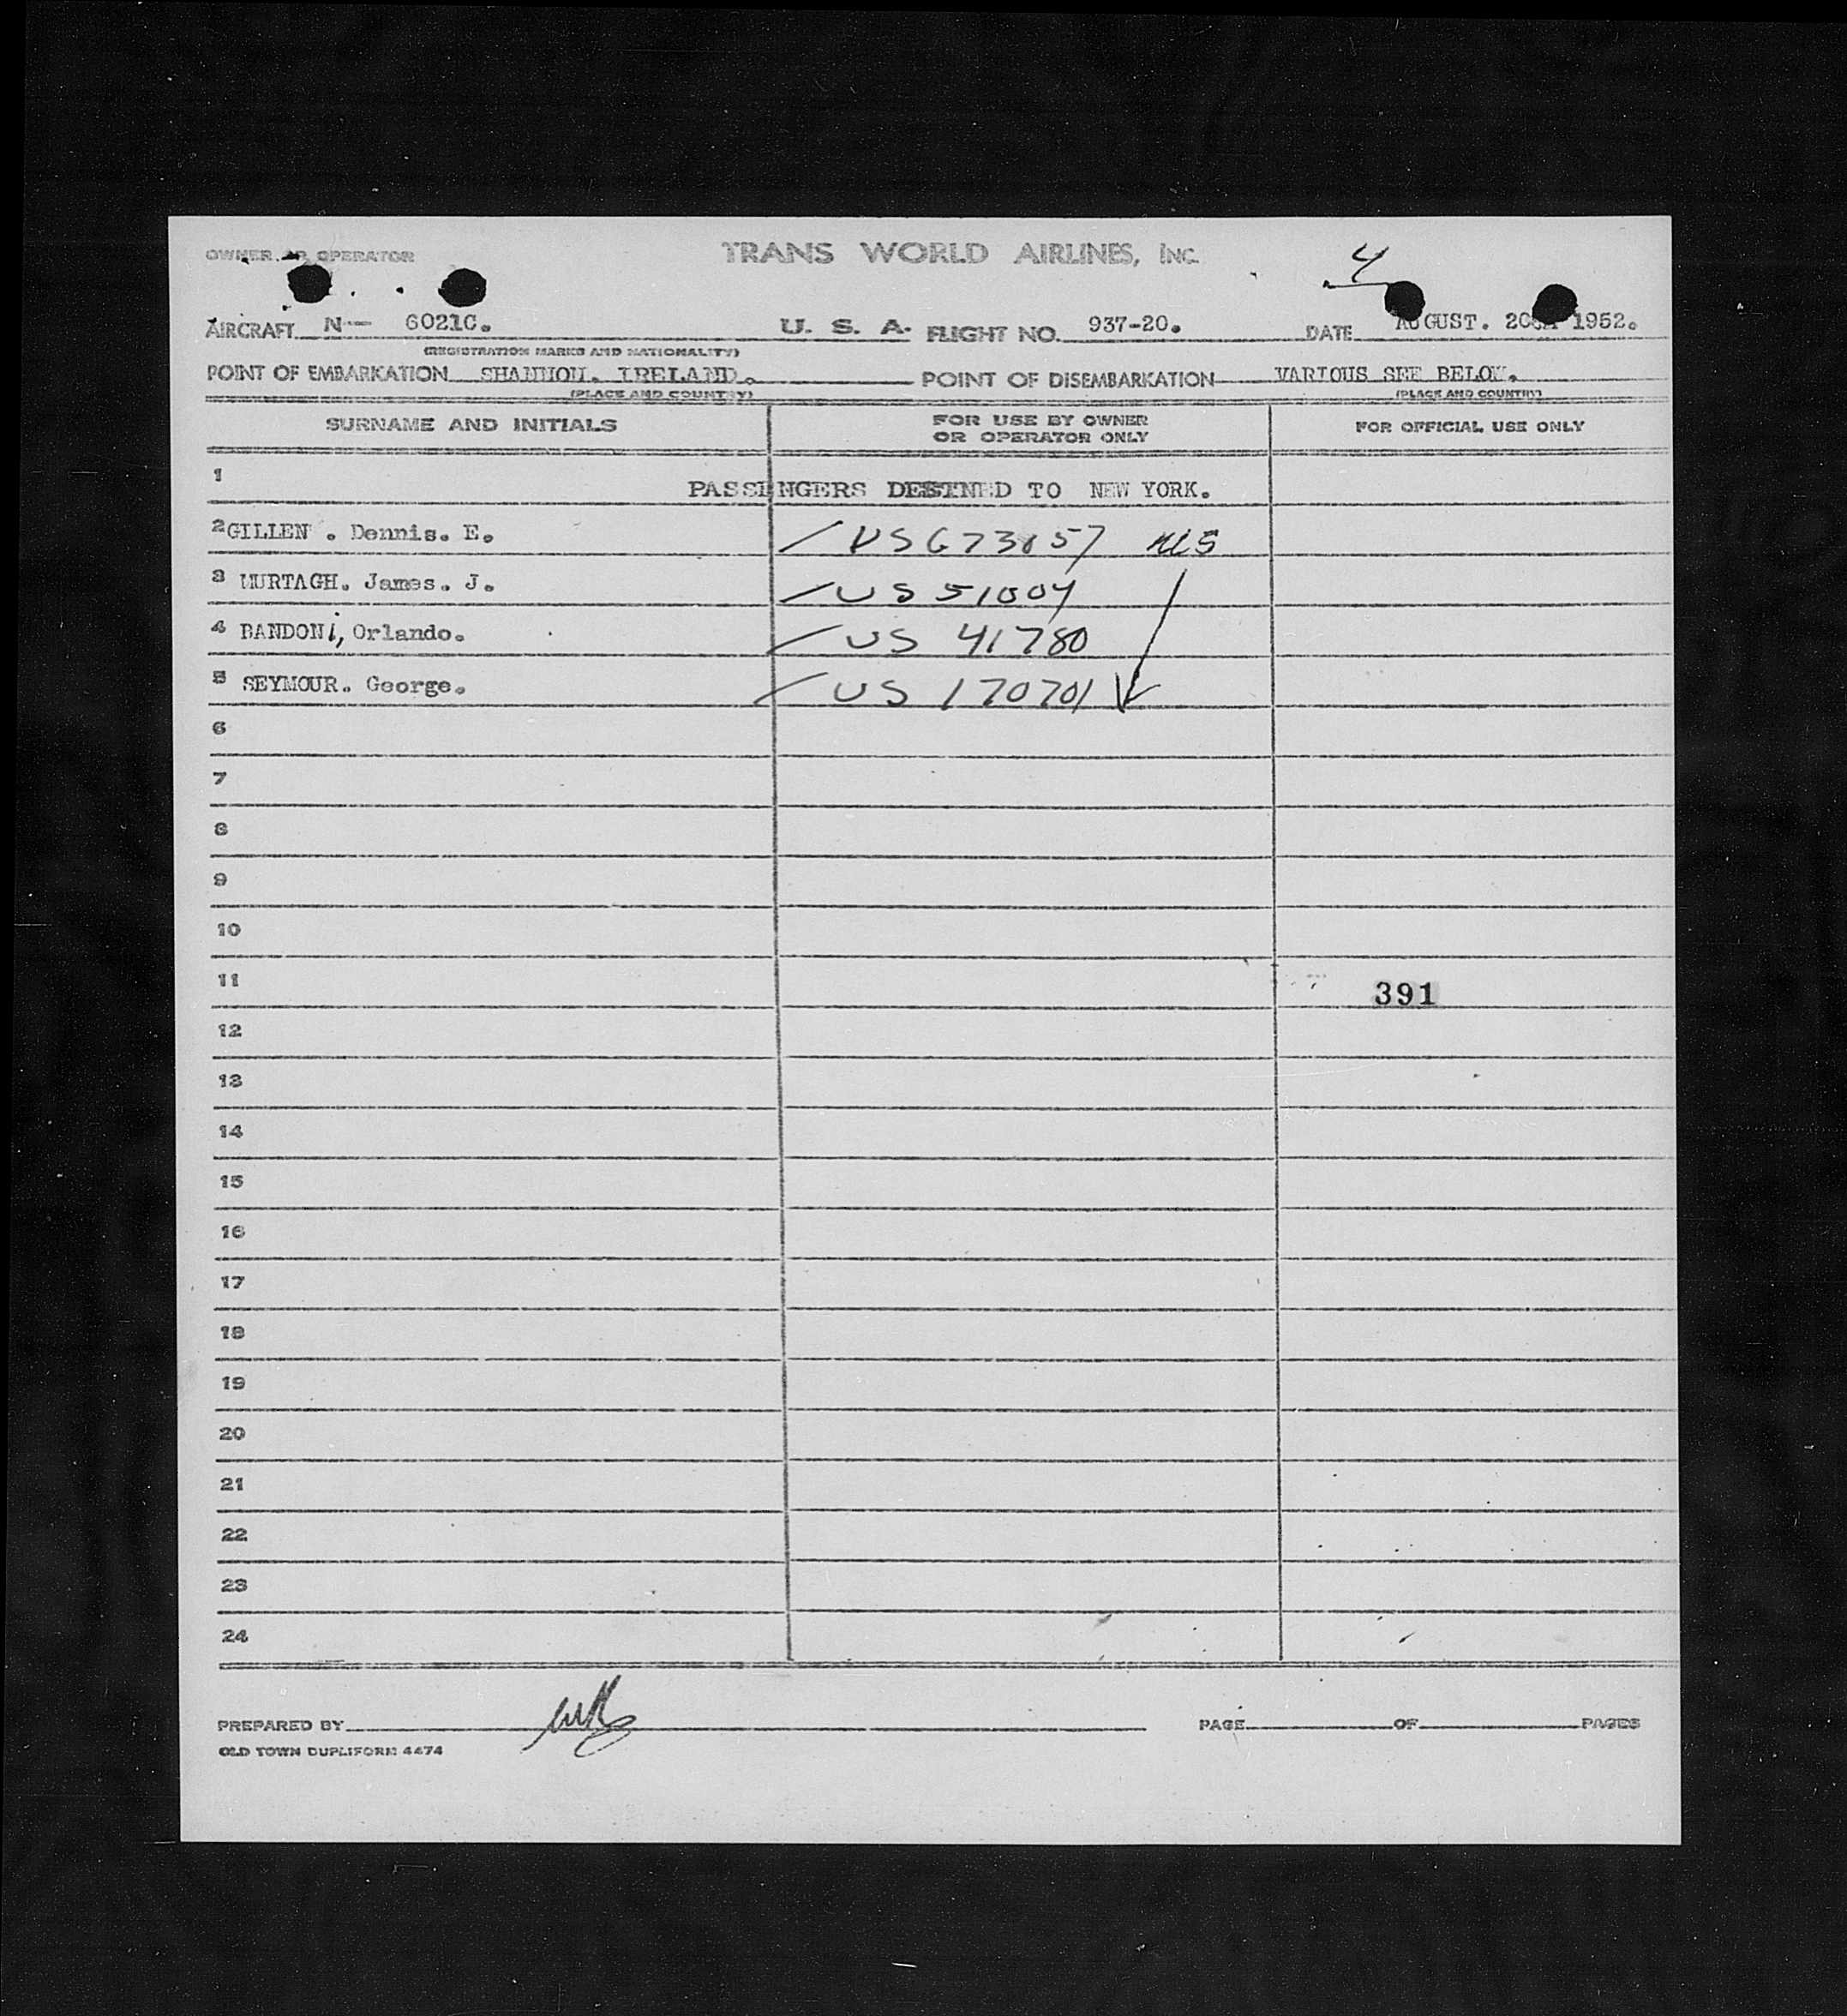 OWNER OR OPERATOR
TRANS WORLD AIRLINES, INC.
4
AIRCRAFT N- 6021C. U. S. A. FLIGHT NO. 937-20. DATE AUGUST. 20 1952.
(REGISTRATION MARKS AND NATIONALITY)
POINT OF EMBARKATION SHANNON. IRELAND. POINT OF DISEMBARKATION VARIOUS SEE BELOW.
(PLACE AND COUNTRY) (PLACE AND COUNTRY)
SURNAME AND INITIALS FOR USE BY OWNER OR OPERATOR ONLY FOR OFFICIAL USE ONLY
1 PASSENGERS DESTINED TO NEW YORK.
2 GILLEN . Dennis. E. US 673857
3 MURTAGH. James. J. US 51004
4 BANDONi, Orlando. US 41780
5 SEYMOUR. George. US 170701
6
7
8
9
10
11 391
12
13
14
15
16
17
18
19
20
21
22
23
24
PREPARED BY PAGE OF PAGES
OLD TOWN DUPLIFORM 4474